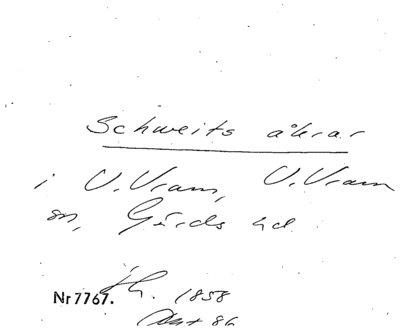 Schweits åkrar
i V. Vram, V. Vram
sn, Gärds hd
Nr 7767. 1858
Akt 86